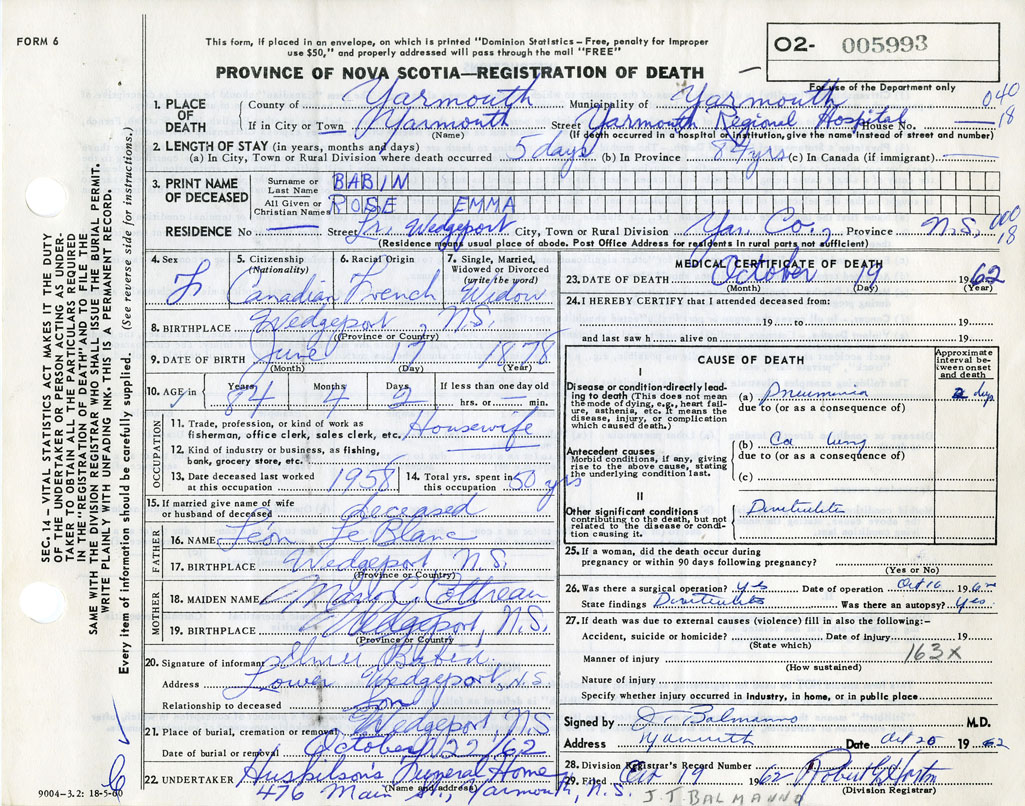 FORM 6
This form, if placed in an envelope, on which is printed "Dominion Statistics – Free, penalty for improper
use $50," and properly addressed will pass through the mail "FREE"
O2- 005993
For use of the Department only
PROVINCE OF NOVA SCOTIA—REGISTRATION OF DEATH
040
18
1. PLACE OF DEATH
County of Yarmouth Municipality of Yarmouth
If in City or Town Yarmouth Street Yarmouth Regional Hospital House No.
(Name) (If death occurred in a hospital or institution, give the name instead of street and number)
2. LENGTH OF STAY (in years, months and days)
(a) In City, Town or Rural Division where death occurred 5 days (b) In Province 84 yrs (c) In Canada (if immigrant)
3. PRINT NAME OF DECEASED
Surname or Last Name BABIN
All Given or Christian Names ROSE EMMA
RESIDENCE No Street Lr. Wedgeport City, Town or Rural Division Yar. Co., Province N.S.
(Residence means usual place of abode. Post Office Address for residents in rural parts not sufficient)
000
18
4. Sex F
5. Citizenship (Nationality) Canadian
6. Racial Origin French
7. Single, Married, Widowed or Divorced (write the word) Widow
8. BIRTHPLACE Wedgeport, N.S.
(Province or Country)
9. DATE OF BIRTH June 17 1878
(Month) (Day) (Year)
10. AGE in Years 84 Months 4 Days 2 If less than one day old hrs. or min.
OCCUPATION
11. Trade, profession, or kind of work as fisherman, office clerk, sales clerk, etc. Housewife
12. Kind of industry or business, as fishing, bank, grocery store, etc.
13. Date deceased last worked at this occupation 1958
14. Total yrs. spent in this occupation 50 yrs
15. If married give name of wife or husband of deceased deceased
FATHER
16. NAME Léon Le Blanc
17. BIRTHPLACE Wedgeport N.S.
(Province or Country)
MOTHER
18. MAIDEN NAME Cottreau
19. BIRTHPLACE Wedgeport, N.S.
(Province or Country)
20. Signature of informant Elmer Babin
Address Lower Wedgeport, N.S.
Relationship to deceased Son
21. Place of burial, cremation or removal Wedgeport, N.S
Date of burial or removal October 22/62
22. UNDERTAKER Huskilson's Funeral Home
(Name and address)
476 Main St., Yarmouth, N.S.
MEDICAL CERTIFICATE OF DEATH
23. DATE OF DEATH October 19 1962
(Month) (Day) (Year)
24. I HEREBY CERTIFY that I attended deceased from:
19 to 19
and last saw h alive on 19
CAUSE OF DEATH
Approximate interval between onset and death
I
Disease or condition directly leading to death (This does not mean the mode of dying, e.g., heart failure, asthenia, etc. It means the disease, injury, or complication which caused death.)
(a) Pneumonia 2 dys
due to (or as a consequence of)
Antecedent causes
Morbid conditions, if any, giving rise to the above cause, stating the underlying condition last.
(b) Ca lung
due to (or as a consequence of)
(c)
II
Other significant conditions
contributing to the death, but not related to the disease or condition causing it.
25. If a woman, did the death occur during pregnancy or within 90 days following pregnancy?
(Yes or No)
26. Was there a surgical operation? Yes Date of operation Oct 16 1962
State findings Was there an autopsy? Yes.
27. If death was due to external causes (violence) fill in also the following:-
Accident, suicide or homicide? Date of injury 19
(State which)
163X
Manner of injury
(How sustained)
Nature of injury
Specify whether injury occurred in Industry, in home, or in public place
Signed by J. Balmanno M.D.
Address Yarmouth Date Oct 20 1962
28. Division Registrar's Record Number
29. Filed Oct 19 1962
(Division Registrar)
J.T. BALMANNO
SEC. 14 – VITAL STATISTICS ACT MAKES IT THE DUTY
OF THE UNDERTAKER OR PERSON ACTING AS UNDER-
TAKER TO OBTAIN ALL THE PARTICULARS REQUIRED
IN THE "REGISTRATION OF DEATH" AND TO FILE THE
SAME WITH THE DIVISION REGISTRAR WHO SHALL ISSUE THE BURIAL PERMIT.
WRITE PLAINLY WITH UNFADING INK. THIS IS A PERMANENT RECORD.
Every item of information should be carefully supplied. (See reverse side for instructions.)
9004–3.2: 18-5-60